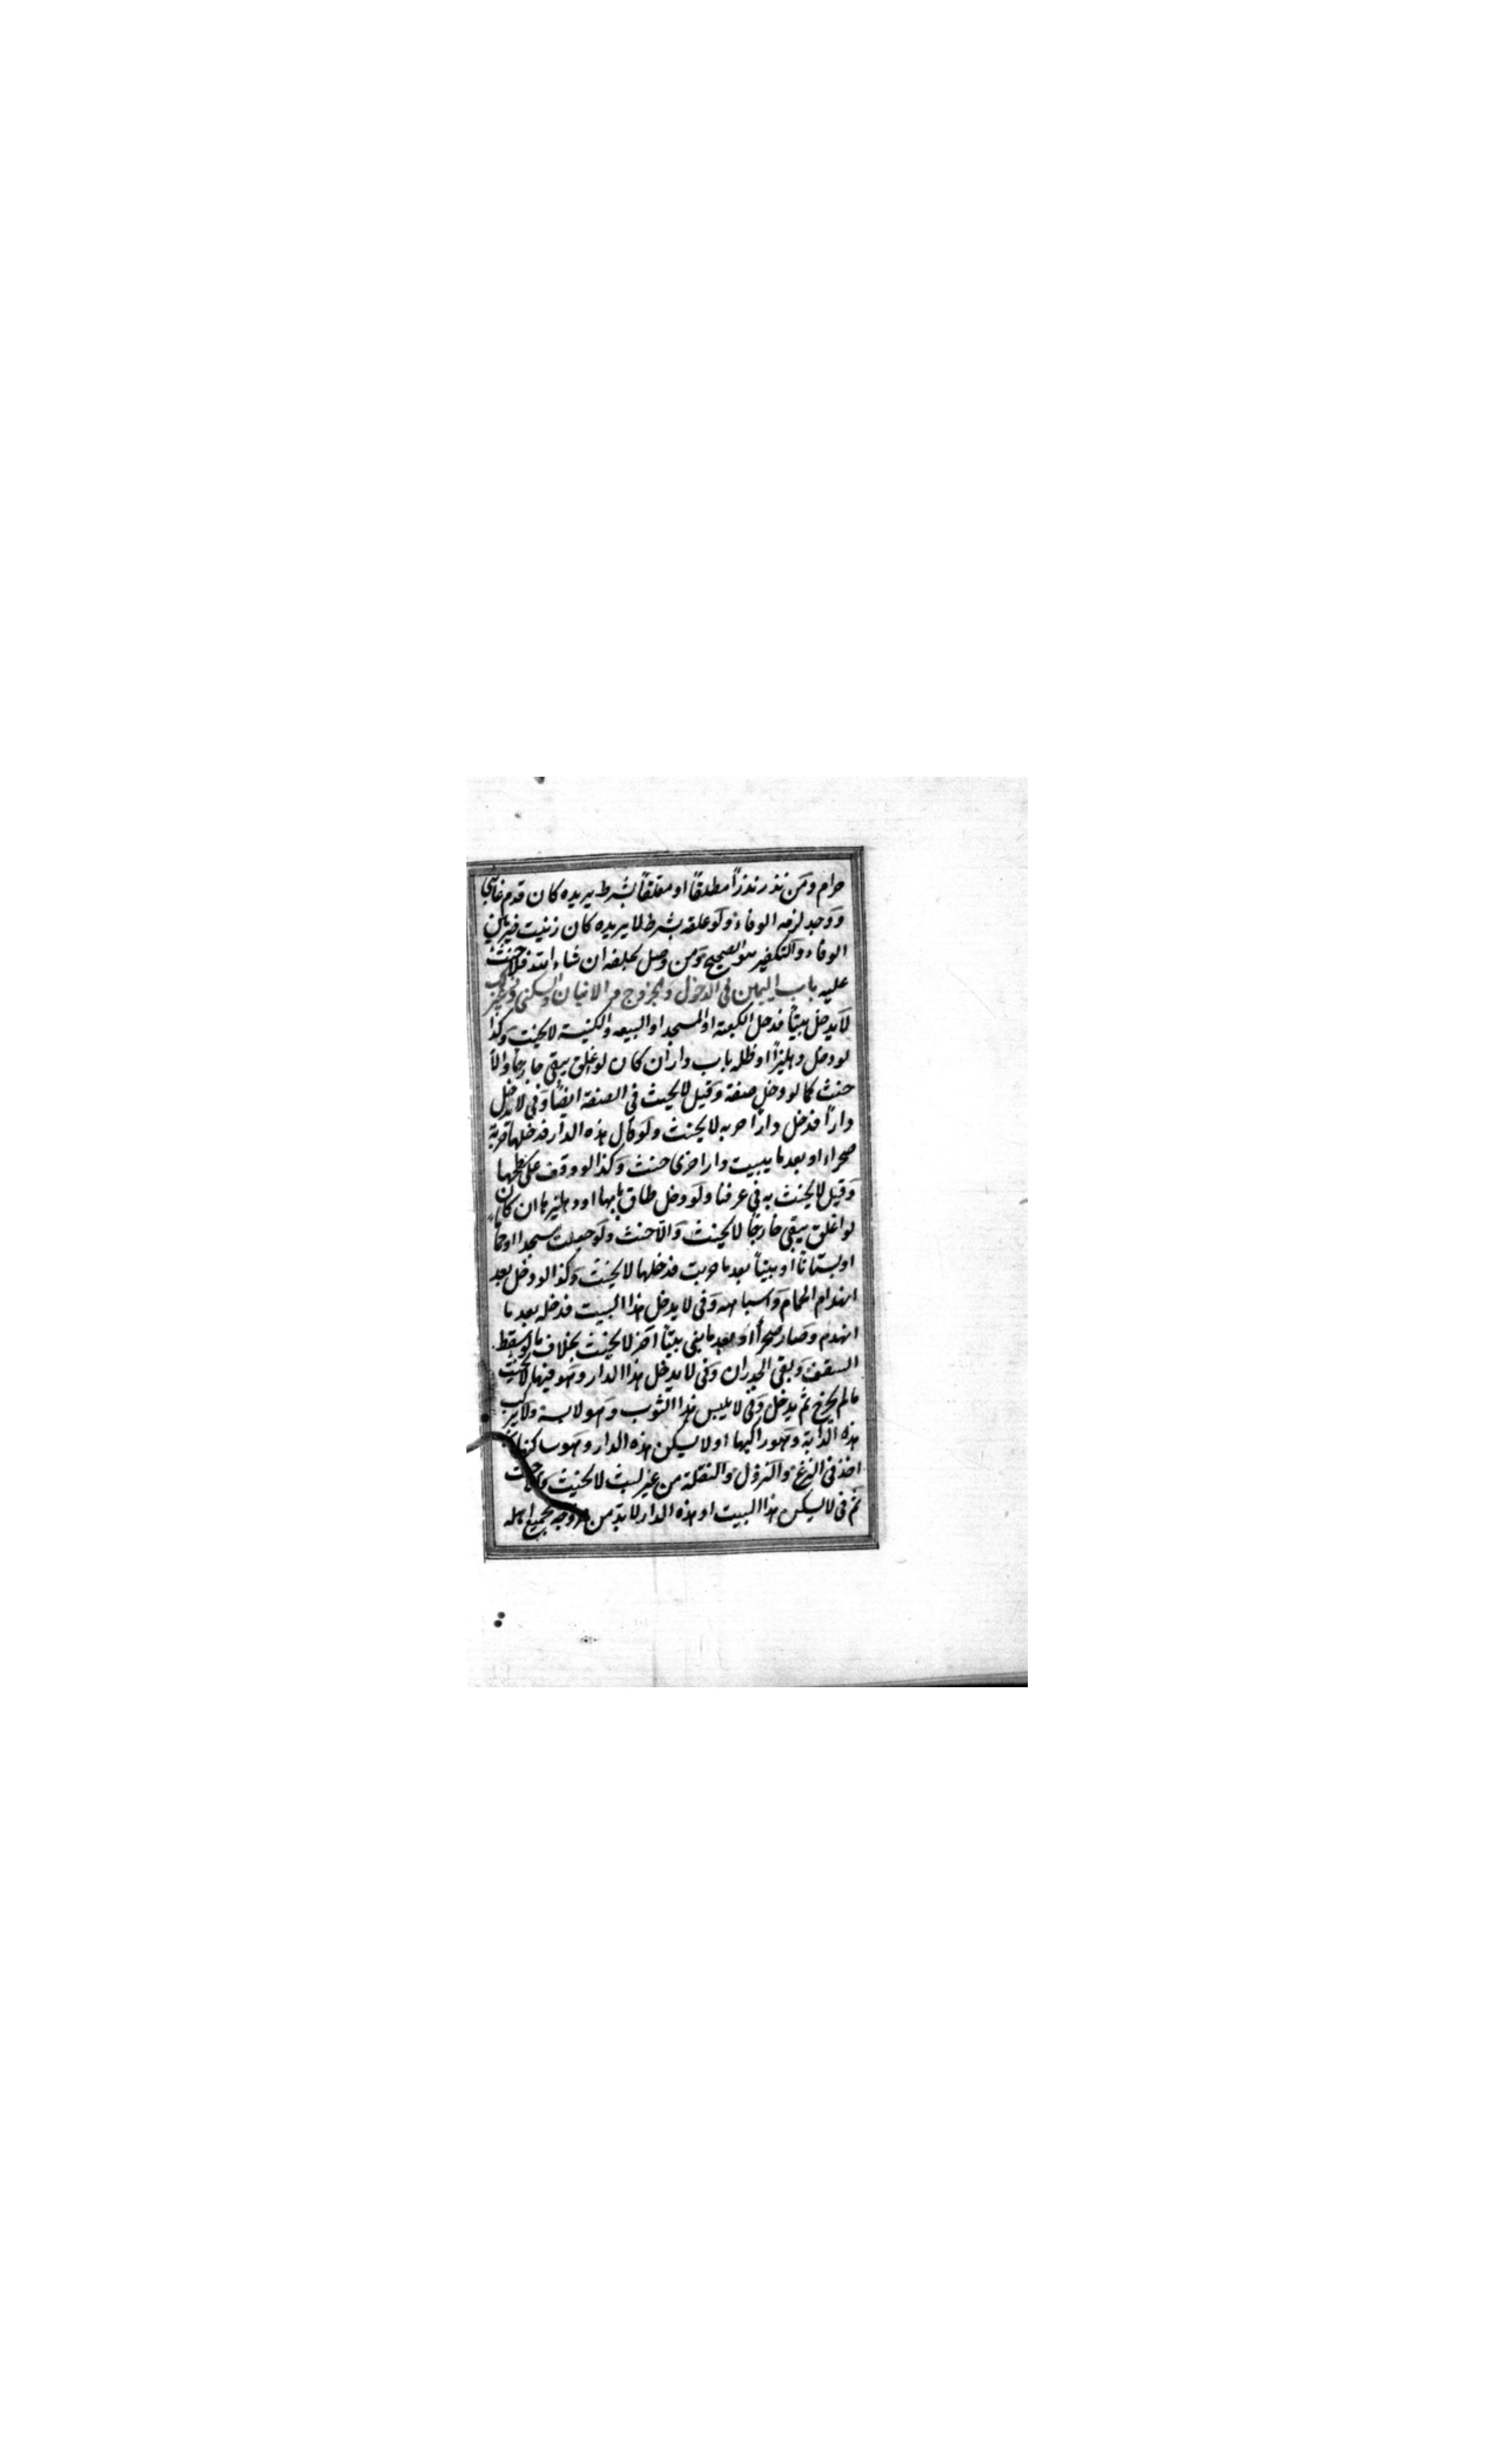 حرام ومن نذر نذراً مطلقاً او معلقاً بشرط يريده كان قدم غائبي
ووجد لزمه الوفاء ولو علقه بشرط لا يريده كان زنيت خير بين
الوفاء والتكفير هو الصحيح ومن وصل بحلفه ان شاء الله فلا حنث
عليه باب اليمين في الدخول والخروج والاتيان والسكنى وغير
لا يدخل بيتاً فدخل الكعبة او المسجد او البيعه والكنيسة لا يحنث وكذا
لو دخل دهليزاً او ظله باب دار ان كان لو اغلق يبقى خارجا والا
حنث كما لو دخل صفة وقيل لا يحنث في الصفة ايضاً وفي لا يدخل
داراً فدخل داراً خربه لا يحنث ولو قال هذه الدار فدخلها خربة
صحراء او بعد ما بنيت دارا اخرى حنث وكذا لو وقف على سطحها
وقيل لا يحنث به في عرفنا ولو دخل طاق بابها او دهليزها ان كان
لو اغلق يبقى خارجا لا يحنث والا حنث ولو جعلت مسجدا او حما
او بستاناً او بيتاً بعد ما خربت فدخلها لا يحنث وكذا لو دخل بعد
انهدام الحمام واشباهه وفي لا يدخل هذا البيت فدخله بعد ما
انهدم وصار صحراً او بعد ما بنى بيتاً اخر لا يحنث بخلاف ما لو سقط
السقف وبقى الجدران وفي لا يدخل هذا الدار وهو فيها لا يحنث
ما لم يخرج ثم يدخل وفي لا يلبس هذا الثوب وهو لابسه ولا يركب
هذه الدابة وهو راكبها او لا يسكن هذه الدار وهو ساكنها
اخذ في النزع والنزول والنقلة من غير لبث لا يحنث والا حنث
ثم في لا يسكن هذا البيت او هذه الدار لا بد من خروجه بجميع اهله